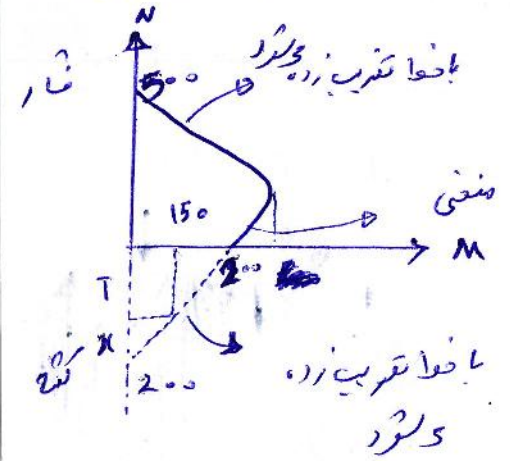 N
فشار
500
با خط تقریب زده می‌شود
150
منحنی
200
M
T
x
کشش
200
با خط تقریب زده
می‌شود